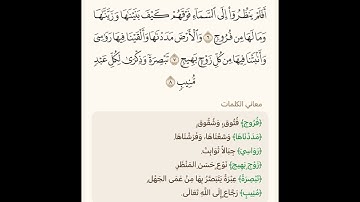 أَفَلَمْ يَنظُرُوٓا۟ إِلَى ٱلسَّمَآءِ فَوْقَهُمْ كَيْفَ بَنَيْنَـٰهَا وَزَيَّنَّـٰهَا
وَمَا لَهَا مِن فُرُوجٍ ٦ وَٱلْأَرْضَ مَدَدْنَـٰهَا وَأَلْقَيْنَا فِيهَا رَوَٰسِىَ
وَأَنۢبَتْنَا فِيهَا مِن كُلِّ زَوْجٍۭ بَهِيجٍ ٧ تَبْصِرَةً وَذِكْرَىٰ لِكُلِّ عَبْدٍ
مُّنِيبٍ ٨
معاني الكلمات
﴿فُرُوجٍ﴾ فُتُوقٍ، وَشُقُوقٍ.
﴿مَدَدْنَاهَا﴾ وَسَّعْنَاهَا، وَفَرَشْنَاهَا.
﴿رَوَاسِيَ﴾ جِبَالًا ثَوَابِتَ.
﴿زَوْجٍ بَهِيجٍ﴾ نَوْعٍ حَسَنِ المَنْظَرِ.
﴿تَبْصِرَةً﴾ عِبْرَةً يُتَبَصَّرُ بِهَا مِنْ عَمَى الجَهْلِ.
﴿مُنِيبٍ﴾ رَجَّاعٍ إِلَى اللَّهِ تَعَالَى.